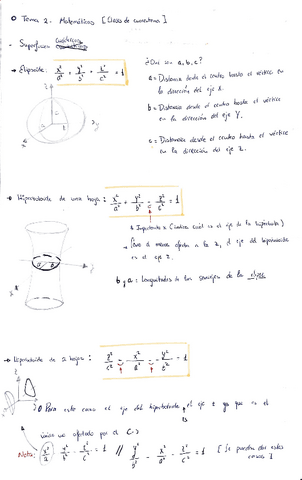 o Tema 2. Matemáticas [Clases de cuarentena]
- Superficies cuádricas
→ Elipsoide: x²/a² + y²/b² + z²/c² = 1
¿Qué son a, b, c?
a = Distancia desde el centro hasta el vértice en
la dirección del eje X.
b = Distancia desde el centro hasta el vértice
en la dirección del eje Y.
c = Distancia desde el centro hasta el vértice
en la dirección del eje Z.
→ Hiperboloide de una hoja: x²/a² + y²/b² - z²/c² = 1
* Importante x (indica cuál es el eje de la superficie)
→ Como el menos afecta a la z, el eje del hiperboloide
es el eje z.
b y a = longitudes de los semiejes de la elipse
→ Hiperboloide de 2 hojas: z²/c² - x²/a² - y²/b² = 1
o Para este caso el eje del hiperboloide es el eje z ya que es el
único no afectado por el (-)
Nota: x²/a² - y²/b² - z²/c² = 1 // y²/b² - x²/a² - z²/c² = 1 [Se pueden dar estos
casos]